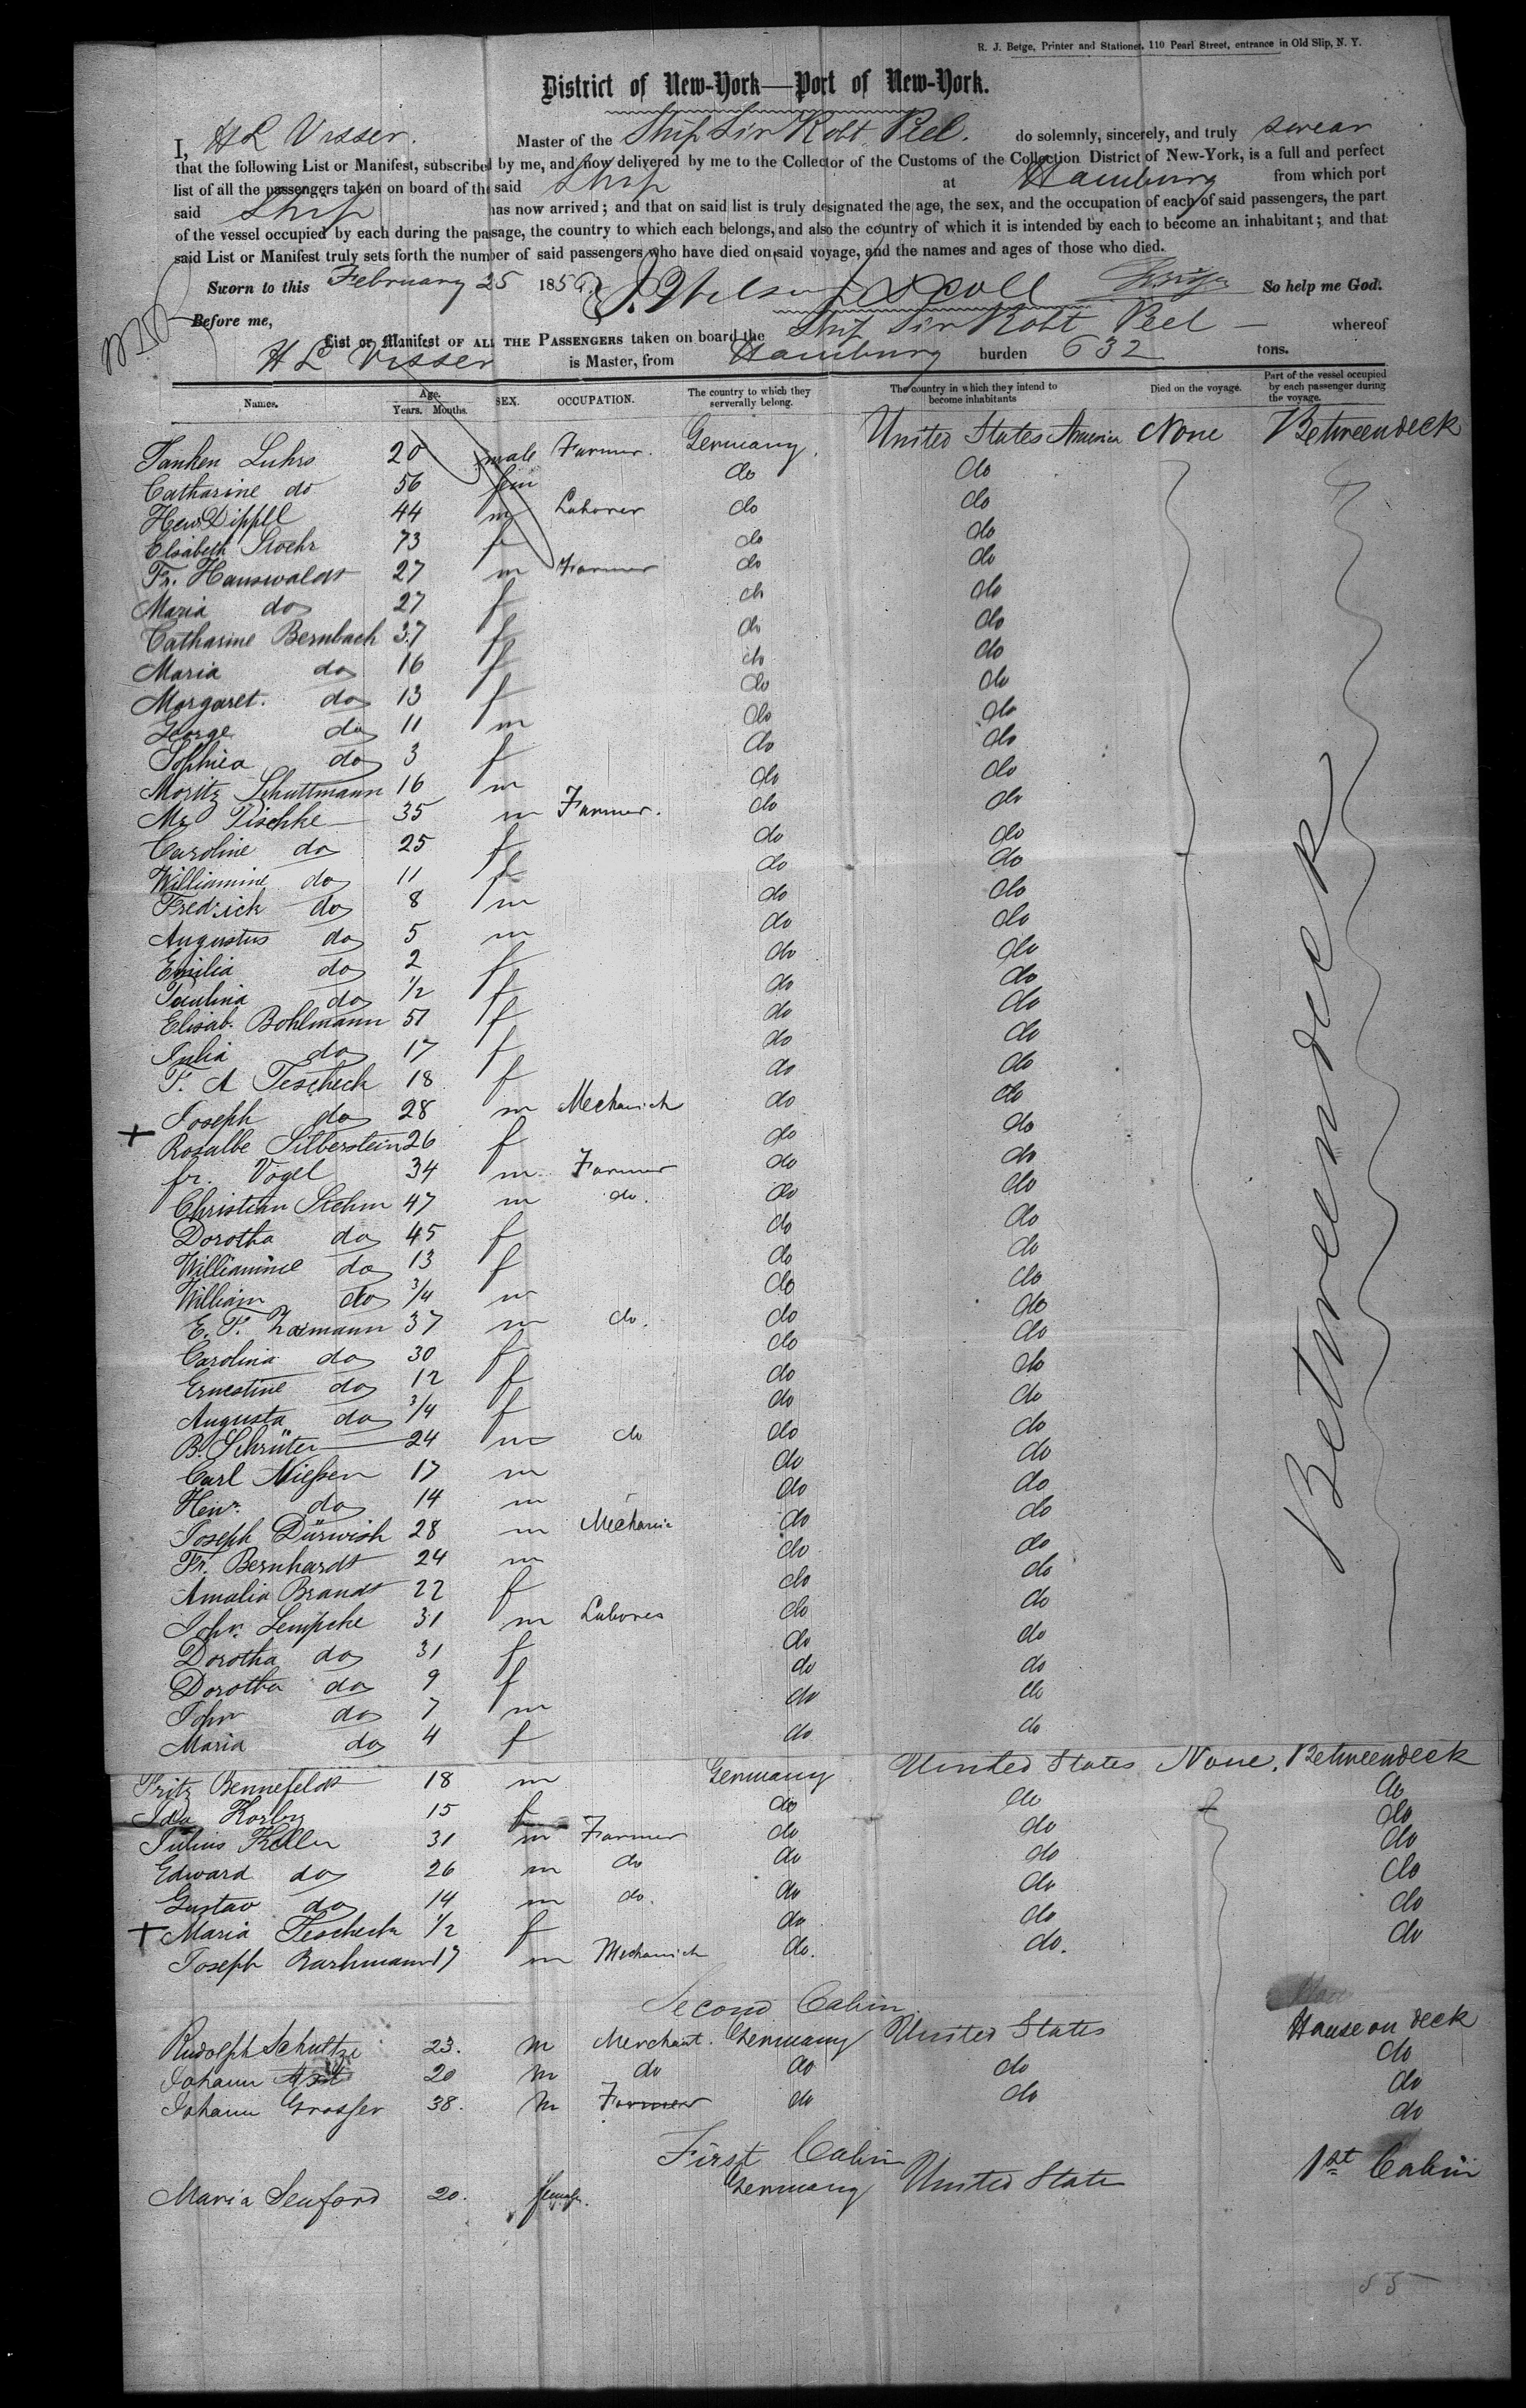 R. J. Betge, Printer and Stationer, 110 Pearl Street, entrance in Old Slip, N. Y.
District of New-York—Port of New-York.
I, H L Visser. Master of the Ship Sir Robt Peel. do solemnly, sincerely, and truly swear
that the following List or Manifest, subscribed by me, and now delivered by me to the Collector of the Customs of the Collection District of New-York, is a full and perfect
list of all the passengers taken on board of the said Ship at Hamburg from which port
said Ship has now arrived; and that on said list is truly designated the age, the sex, and the occupation of each of said passengers, the part
of the vessel occupied by each during the passage, the country to which each belongs, and also the country of which it is intended by each to become an inhabitant; and that
said List or Manifest truly sets forth the number of said passengers who have died on said voyage, and the names and ages of those who died.
Sworn to this February 25 185 So help me God.
Before me,
List or Manifest OF ALL THE PASSENGERS taken on board the Ship Sir Robt Peel — whereof
H L Visser is Master, from Hamburg burden 632 tons.
Names. Age. Years. Months. SEX. OCCUPATION. The country to which they serverally belong. The country in which they intend to become inhabitants Died on the voyage. Part of the vessel occupied by each passenger during the voyage.
Tanken Luhrs 20 male Farmer. Germany. United States America None Betweendeck
Catharine do 56 fem do do
Hew Dippell 44 m Laborer do do
Elsabeth Stoehr 73 f do do
Fr. Hauswaldt 27 m Farmer do do
Maria do 27 f do do
Catharine Bernbach 37 f do do
Maria do 16 f do do
Margaret. do 13 f do do
George do 11 m do do
Sophia do 3 f do do
Moritz Schuttmann 16 m do do
Mr Pischke 35 m Farmer. do do
Caroline do 25 f do do
Williamine do 11 f do do
Fredrick do 8 m do do
Augustus do 5 m do do
Emilia do 2 f do do
Paulina do 1/2 f do do
Elisab. Bohlmann 51 f do do
Julia do 17 f do do
F. A Tescheck 18 f do do
Joseph do 28 m Mechanick do do
+ Rosalbe Silberstein 26 f do do
fr. Vogel 34 m Farmer do do
Christian Stehm 47 m do. do do
Dorotha do 45 f do do
Williamine do 13 f do do
William do 3/4 m do do
E. F. 37 m do. do do
Carolina do 30 f do do
Ernestine do 12 f do do
Augusta do 3/4 f do do
B. Schrüter 24 m do do do
Carl Nießen 17 m do do
Henr. do 14 m do do
Joseph Dürwish 28 m Mechanic do do
Fr. Bernhardt 24 m do do
Amalia Brandt 22 f do do
John Lempcke 31 m Labores do do
Dorotha do 31 f do do
Dorotha do 9 f do do
John do 7 m do do
Maria do 4 f do do
Betweendeck
Fritz Bennefeldt 18 m Germany United States None. Betweendeck
Ida 15 f do do do
Julius Keller 31 m Farmer do do do
Edward do 26 m do do do do
Gustav do 14 m do. do do do
+ Maria Tescheck 1/2 f do do do
Joseph Barhmann 17 m Mechanick do. do. do
Second Cabin.
Rudolph Schultze 23. m Merchant. Germany United States House on deck
Johann 20 m do do do do
Johann Grosser 38. m Farmer do do do
do
First Cabin
Maria Senford 20. female. Germany United State 1st Cabin
55